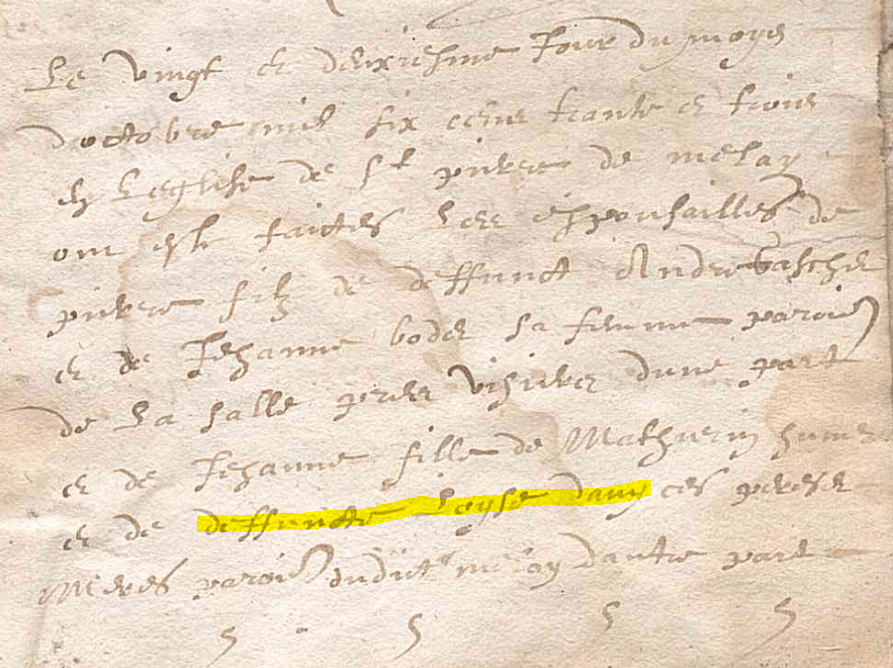 Le vingt et deuxiesme Jour du moys
doctobre mil six cens trante et trois
en Leglise de St pierre de melay
ont este faictes Les espousailles de
pierre filz de deffunct Andre Gascher
et de Jehanne boder sa femme parois
de La salle pres vihiers dune part
et de Jehanne fille de Mathurin hume
et de deffuncte Loyse davy ces peres et
Meres parois dudict melay dautre part